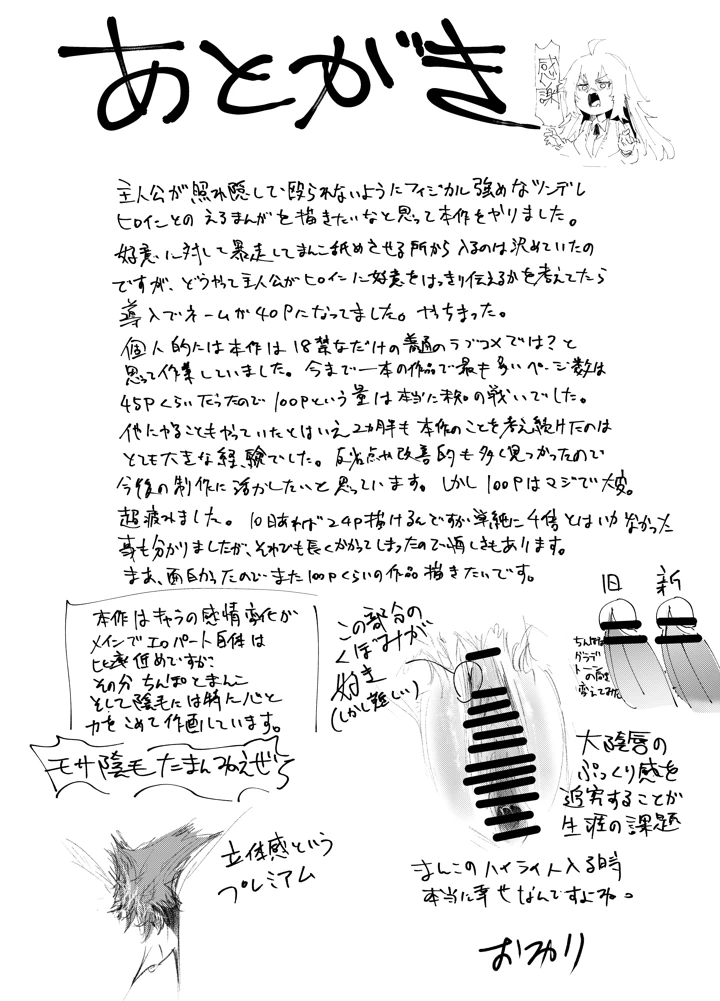 あとがき
感謝
主人公が照れ隠しで殴られないようにフィジカル強めなツンデレ
ヒロインとのえろまんがを描きたいなと思って本作をやりました。
好意に対して暴走してまんこ舐めさせる所から入るのは決めていたの
ですが、どうやって主人公がヒロインに好意をはっきり伝えるかを考えてたら
導入でネームが40Pになってました。やっちまった。
個人的には本作は18禁なだけの普通のラブコメでは?と
思って作業していました。今まで一本の作品で最も多いページ数は
45Pくらいだったので100Pという量は本当に未知の戦いでした。
他にやることもやっていたとはいえ2カ月半も本作のことを考え続けたのは
とても大きな経験でした。反省点や改善的も多く見つかったので
今後の制作に活かしたいと思っています。しかし100Pはマジで大変。
超疲れました。10日あれば24P描けるんですが単純に4倍とはいかなかった
事も分かりましたが、それでも長くかかってしまったので悔しさもあります。
まあ、面白かったのでまた100Pくらいの作品描きたいです。
本作はキャラの感情変化が
メインでエロパート自体は
比率低めですが、
その分ちんぽとまんこ
そして陰毛には特に心と
力をこめて作画しています。
モサ陰毛たまんねえぜ
この部分の
くぼみが
好き
(しかし難しい)
旧
新
ちんぽは
グラデ
トーン
の向き
変えてみた
大陰唇の
ぷっくり感を
追究することが
生涯の課題
立体感という
プレミアム
まんこのハイライト入る時
本当に幸せなんですよね。
おわり